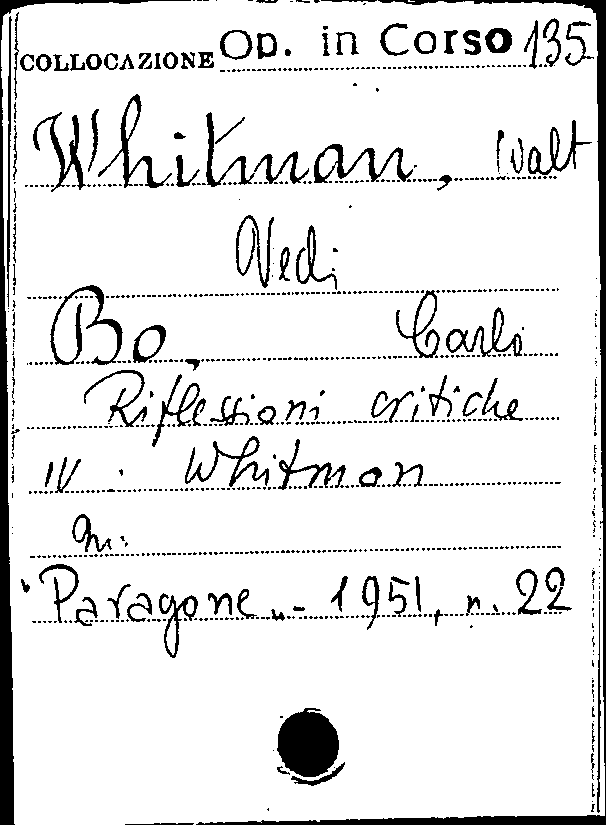 COLLOCAZIONE Op. in Corso 135
Whitman, Walt
Vedi
Bo, Carlo
Riflessioni critiche
IV. Whitman
In:
"Paragone" - 1951, n. 22